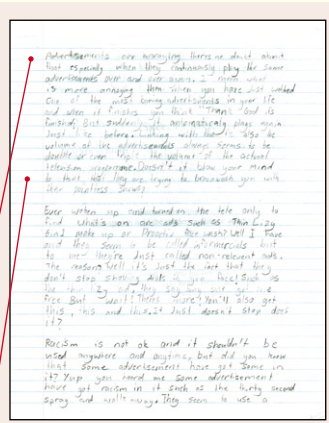 Advertisements are annoying theres no doubt about
that especially when they continuously play the same
advertisements over and over again. I mean what
is more annoying than when you have just watched
one of the most boring advertisements in your life
and when it finishes you think "Thank God its
finished" But suddenly it automatically plays again
Just like before. Linking with the is also the
volume of the advertisements always seems to be
double or even triple the volume of the actual
television programme. Doesn't it blow your mind
to that, like they are trying to brainwash you with
their pointless

Ever woken up and turned on the tele only to
find what's on are ads such as Thin Lizy
6in1 make up or Proactiv face wash? Well I have
and they seem to be called infomercials but
to me they're Just called non-relevent ads.
The reason? Well it's Just the fact that they
don't stop shoving ads in your face! Such as
the thin lizy ad, they say buy one get one
free But wait! Theres more! You'll also get
this, this and this. It Just doesn't stop does
it?

Racism is not ok and it shouldn't be
used anywhere and anytime, but did you know
that some advertisements have got some in
it? Yup you heard me some advertisement
have got racism in it such as the thirty second
spray and walk away. They seem to use a